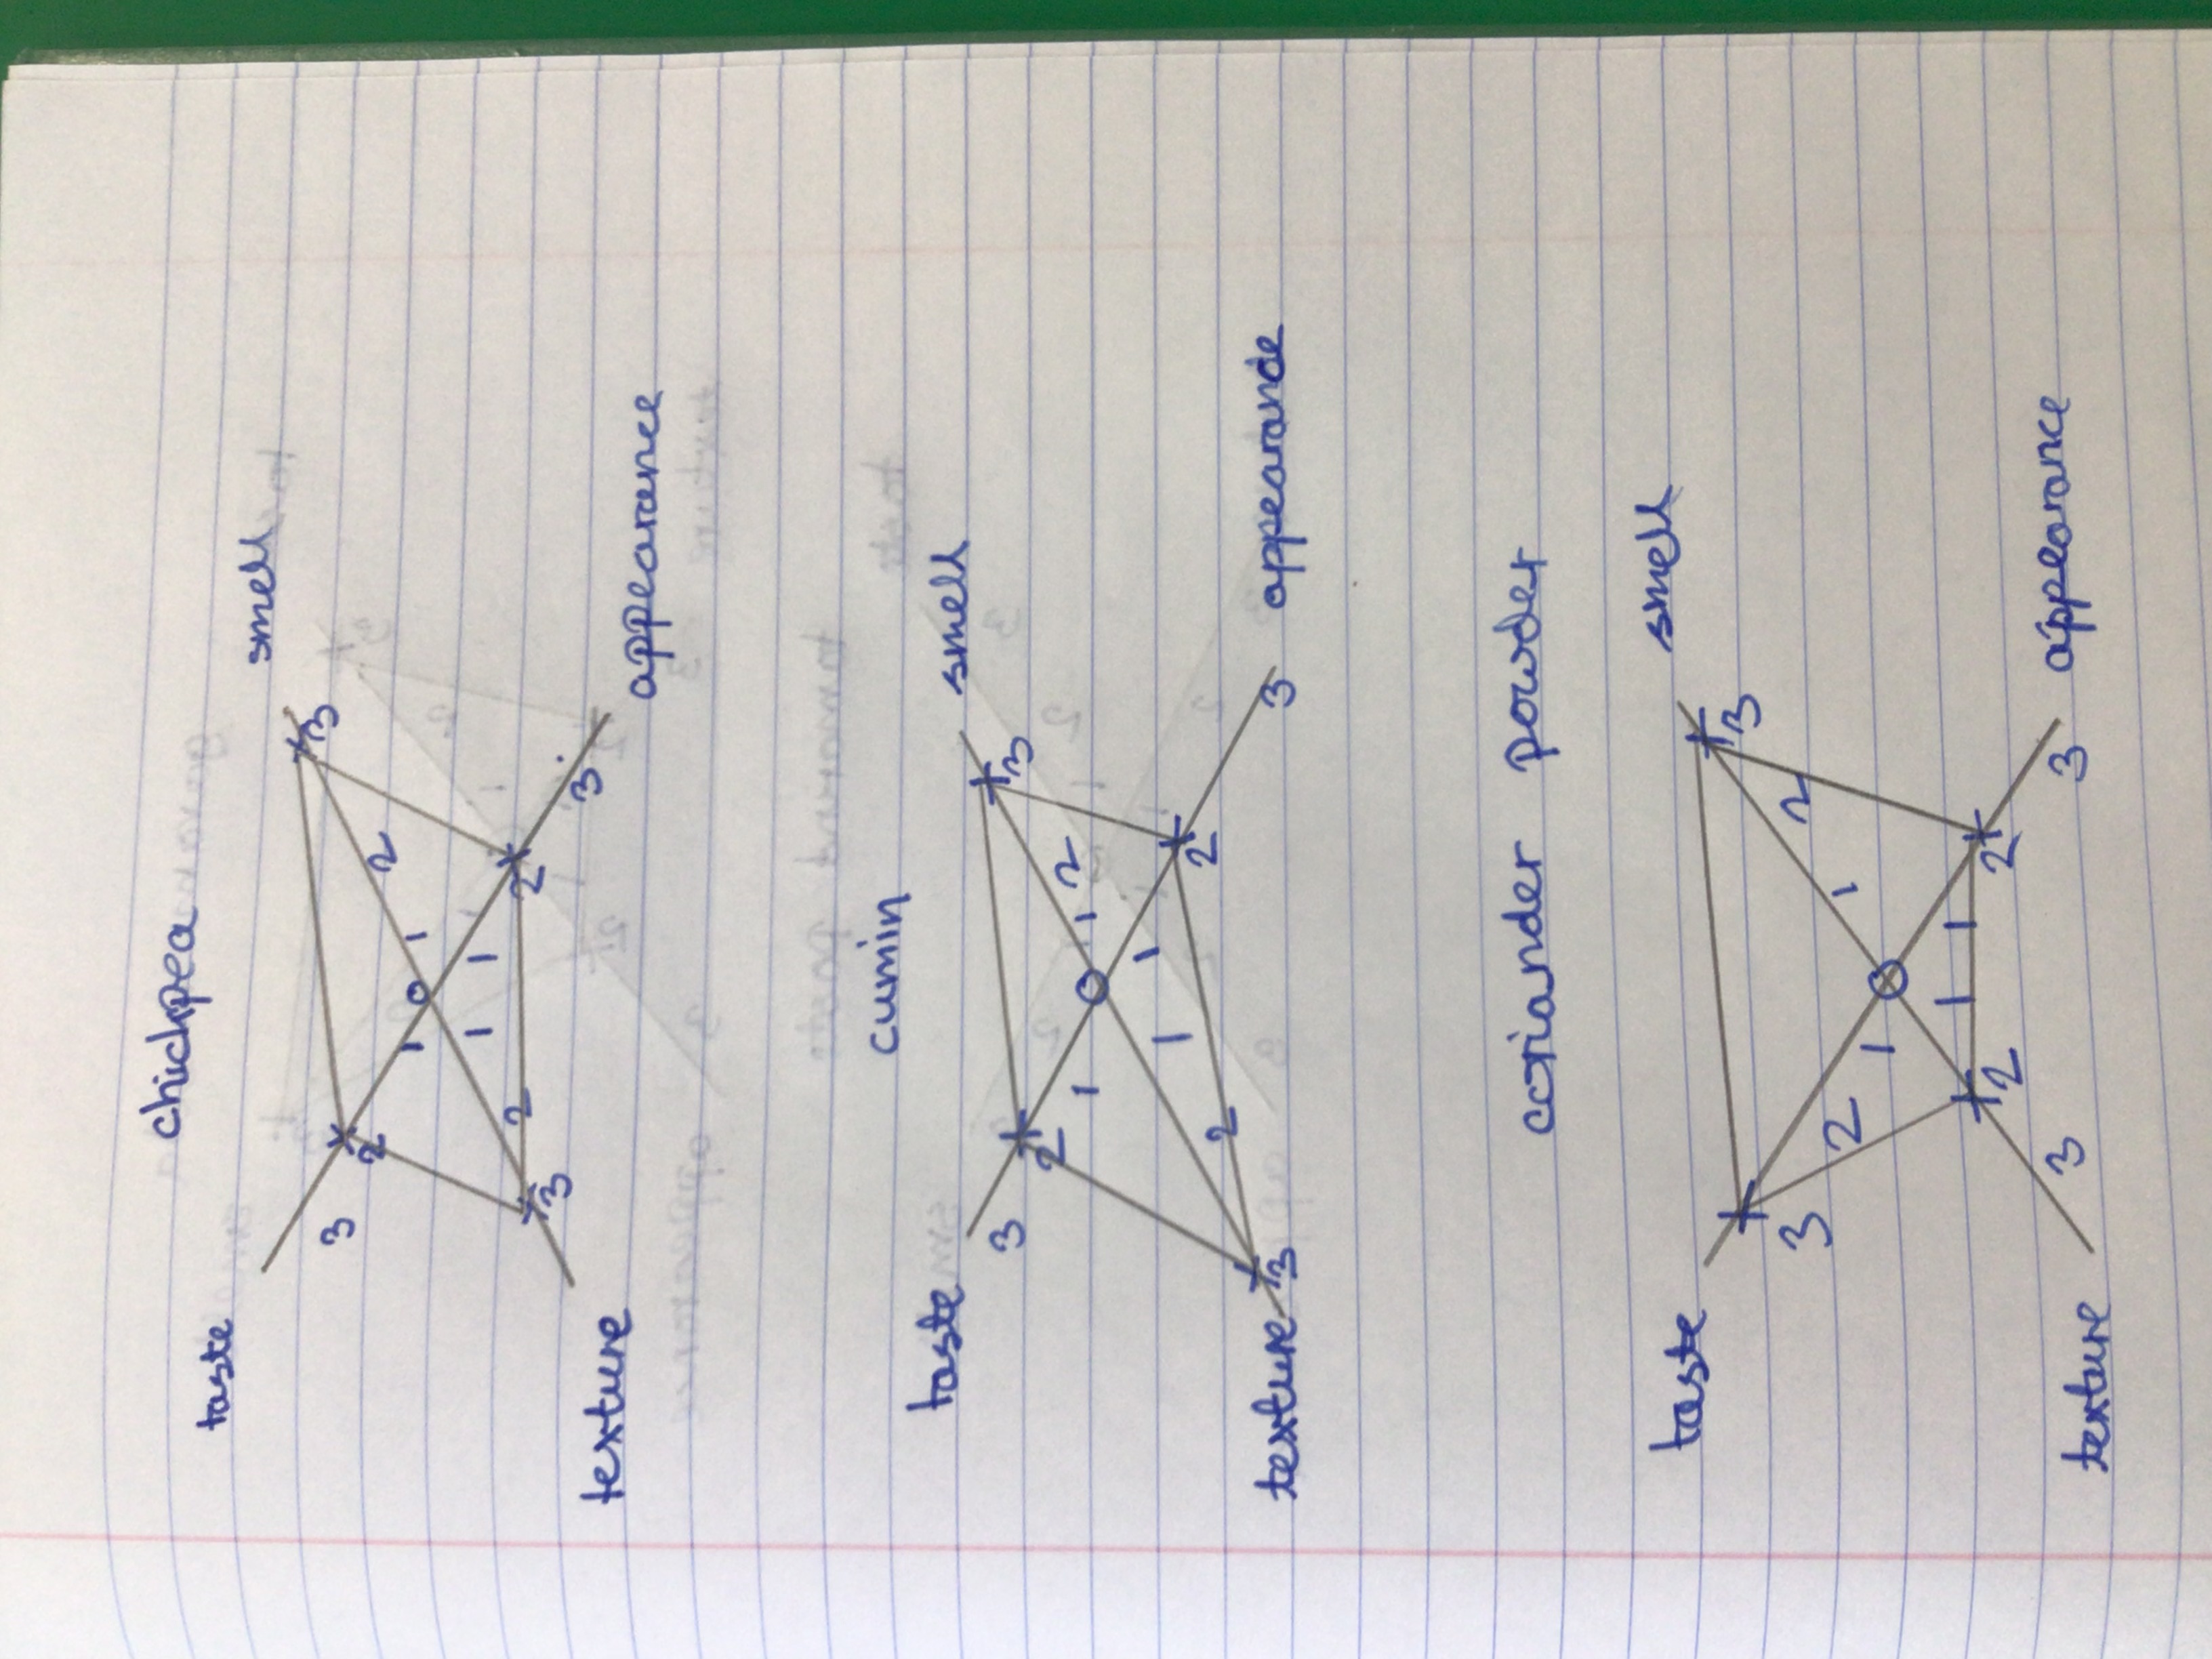 chickpea
taste smell
3 2 3
1 1 2
0
1 1
3 2 2 3
texture appearance
cumin
taste smell
3 2 3
1 1 2
0
1 1
3 2 2 3
texture appearance
coriander powder
taste smell
3 3
2 1 1 2
0
1 1
2 2
3 3
texture appearance